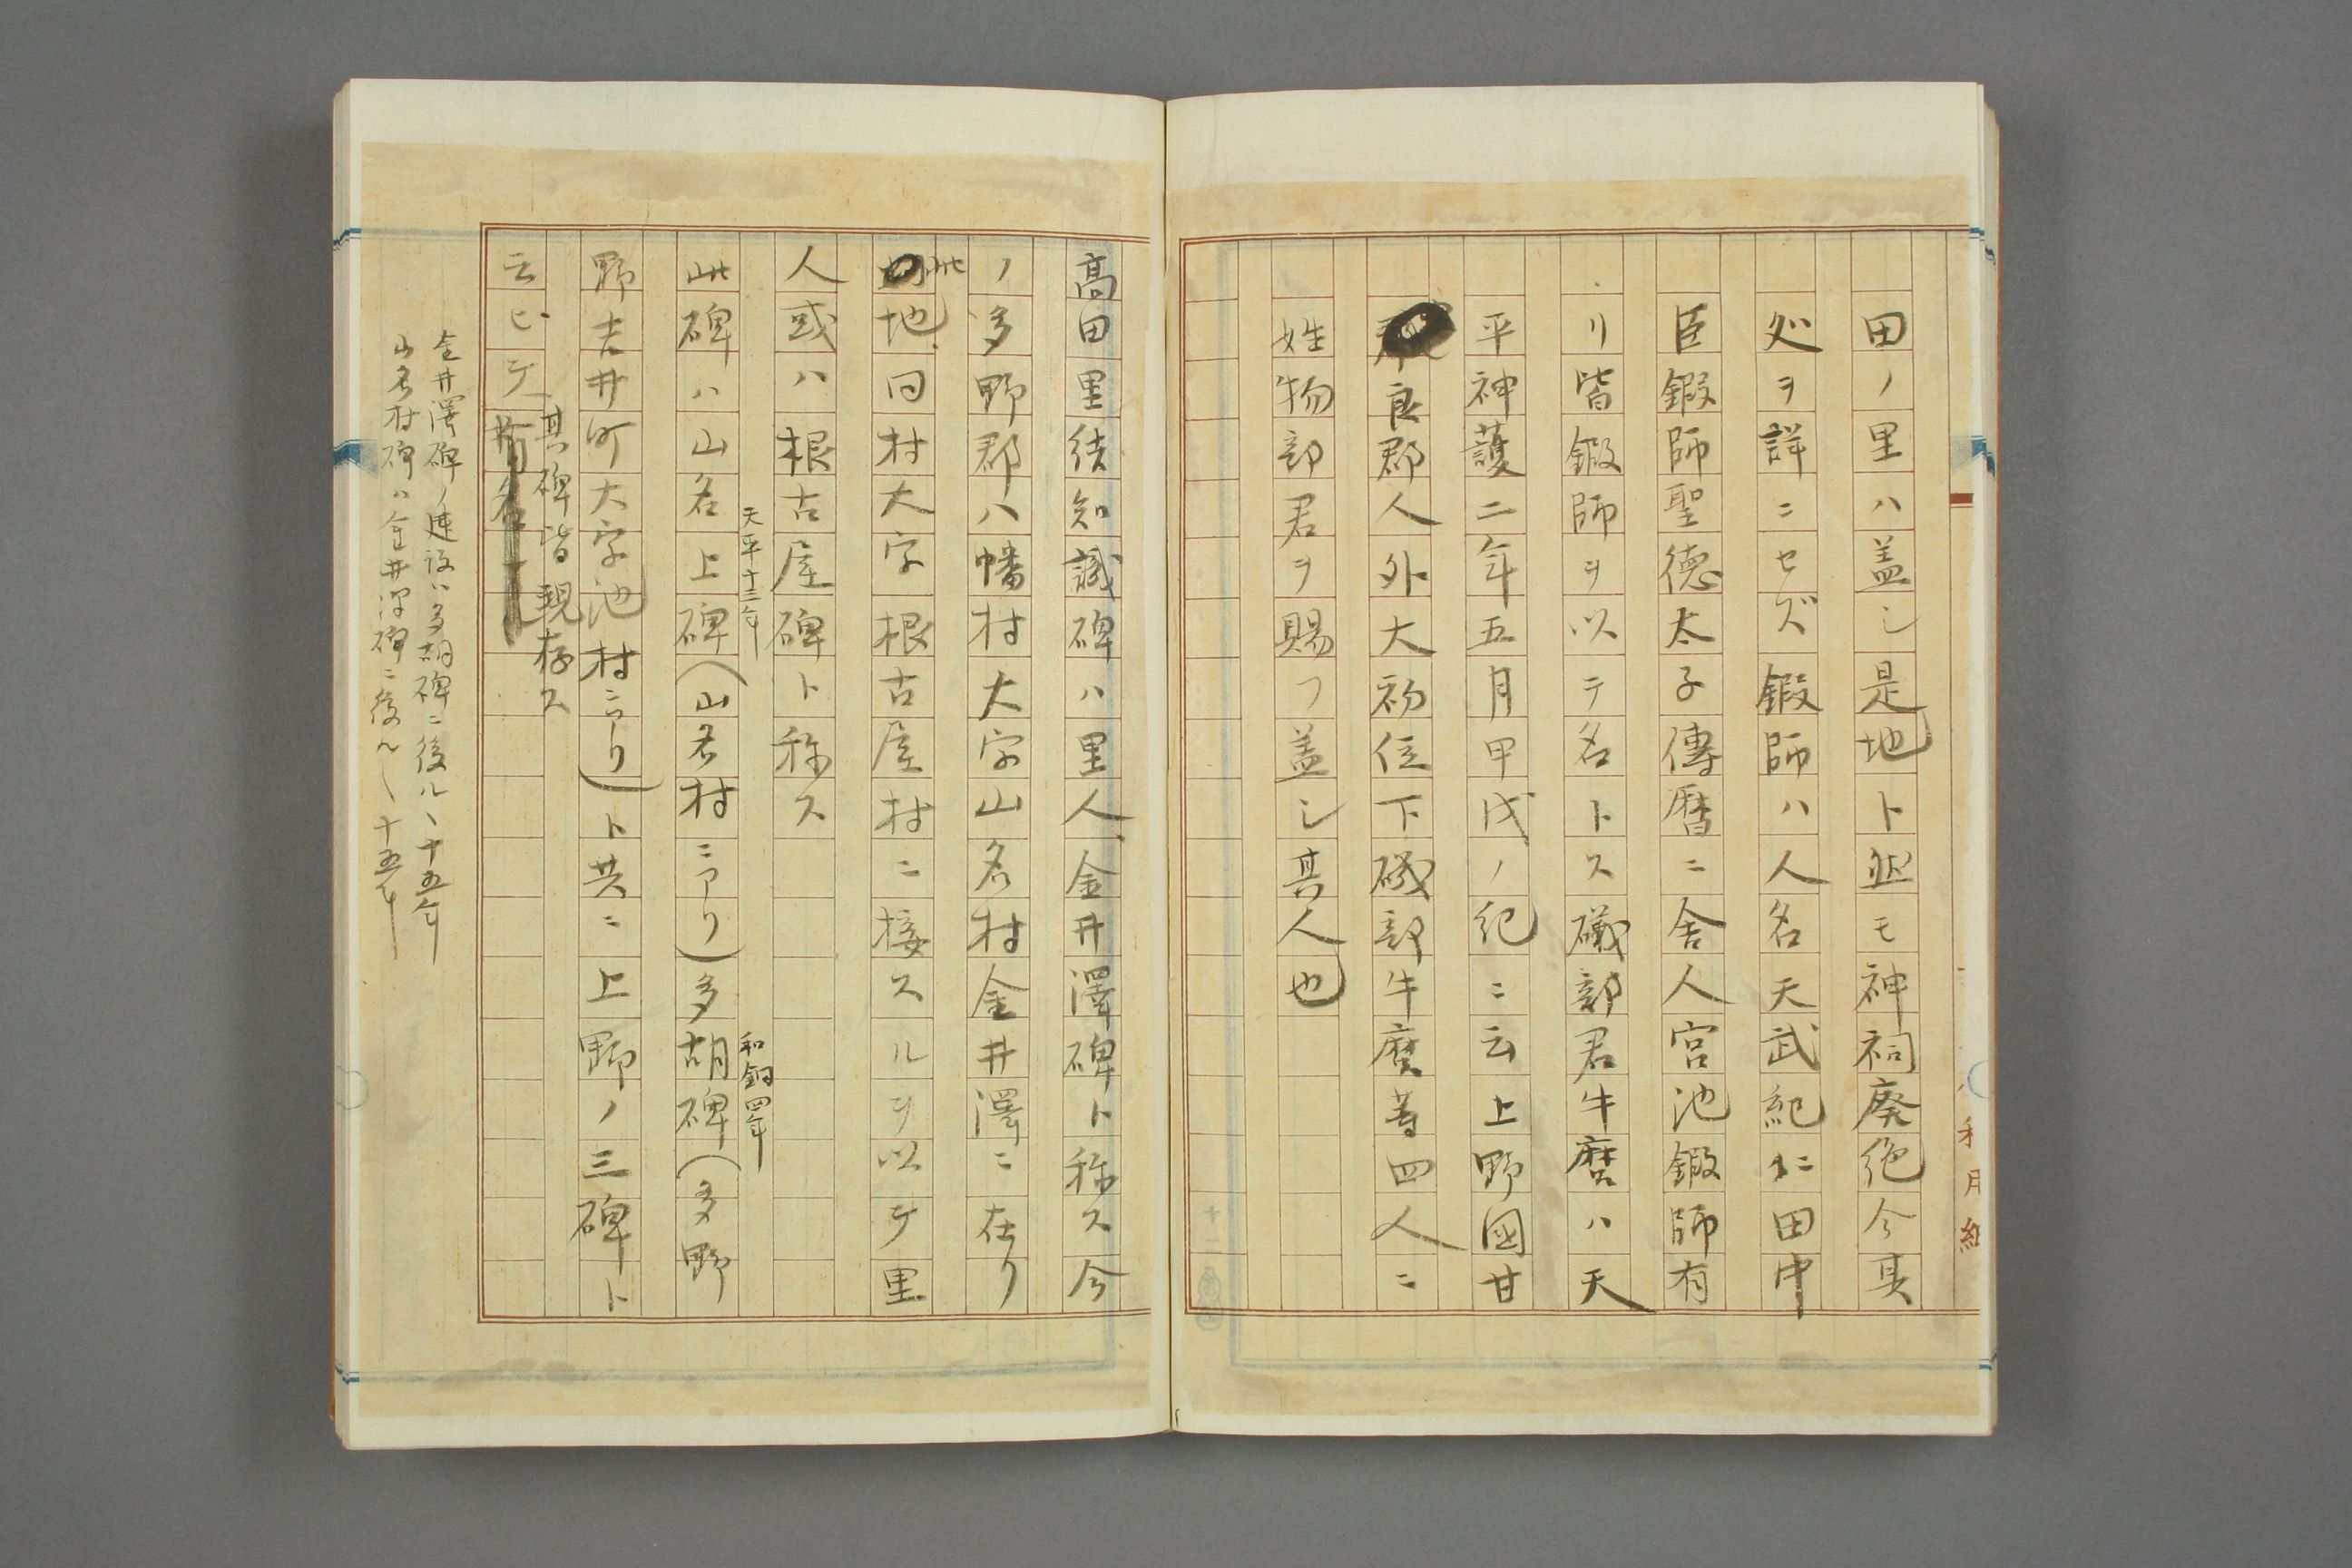 田ノ里ハ盖シ是地ト𣦼モ神祠廃絶今其
処ヲ詳ニセズ鍜師ハ人名天武紀ニ田中
臣鍜師聖徳太子傳暦ニ舎人宮池鍜師有
リ皆鍜師ヲ以テ名トス礒部君牛麿ハ天
平神護二年五月甲戌ノ紀ニ云上野國甘
良郡人外大初位下礒部牛麿等四人ニ
姓物部君ヲ賜フ盖シ其人也
高田里結知識碑ハ里人、金井澤碑ト称ス今
ノ多野郡八幡村大字山名村金井澤ニ在リ
此地同村大字根古屋村ニ接スルヲ以テ里
人或ハ根古屋碑ト称ス
天平十三年
和銅四年
此碑ハ山名上碑(山名村ニアリ)多胡碑(多野
野吉井町大字池村ニアリ)ト共ニ上野ノ三碑ト
其碑皆現存ス
云ヒテ
金井澤碑ノ建設ハ多胡碑ニ後ル、十五年
山名村碑ハ金井澤碑ニ後ル、十五年